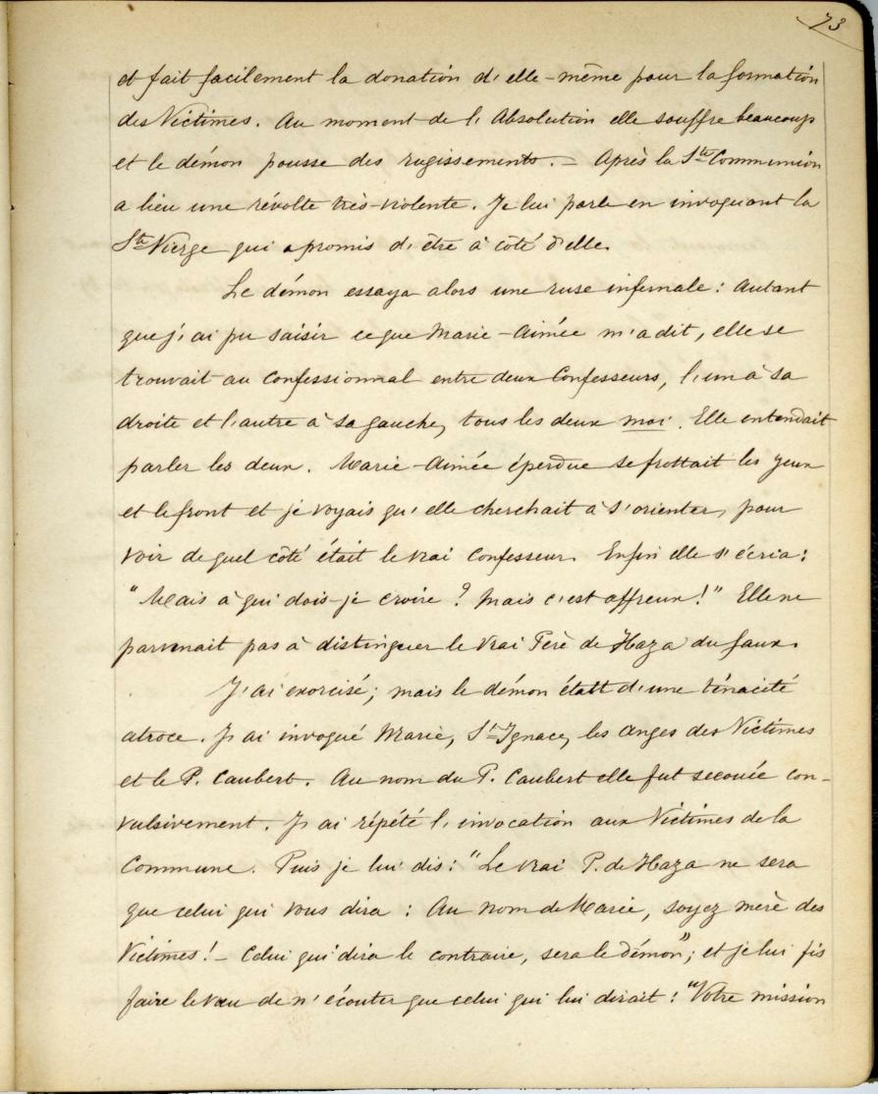 73
et fait facilement la donation d'elle-même pour la formation
des Victimes. Au moment de l'Absolution elle souffre beaucoup
et le démon pousse des rugissements. – Après la Ste Communion
a lieu une révolte très-violente. Je lui parle en invoquant la
Ste Vierge qui a promis d'être à côté d'elle.
Le démon essaya alors une ruse infernale : Autant
que j'ai pu saisir ce que Marie-Aimée m'a dit, elle se
trouvait au Confessionnal entre deux Confesseurs, l'un à sa
droite et l'autre à sa gauche, tous les deux moi. Elle entendait
parler les deux. Marie-Aimée éperdue se frottait les yeux
et le front et je voyais qu'elle cherchait à s'orienter, pour
voir de quel côté était le vrai Confesseur. Enfin elle s'écria :
"Mais à qui dois-je croire ? Mais c'est affreux !" Elle ne
parvenait pas à distinguer le vrai Père de Haza du faux.
J'ai exorcisé ; mais le démon était d'une ténacité
atroce. J'ai invoqué Marie, St Ignace, les Anges des Victimes
et le P. Caubert. Au nom du P. Caubert elle fut secouée con-
vulsivement. J'ai répété l'invocation aux Victimes de la
Commune. Puis je lui dis : "Le vrai P. de Haza ne sera
que celui qui vous dira : Au nom de Marie, soyez mère des
Victimes ! – Celui qui dira le contraire, sera le démon" ; et je lui fis
faire le vœu de n'écouter que celui qui lui dirait : "Votre mission